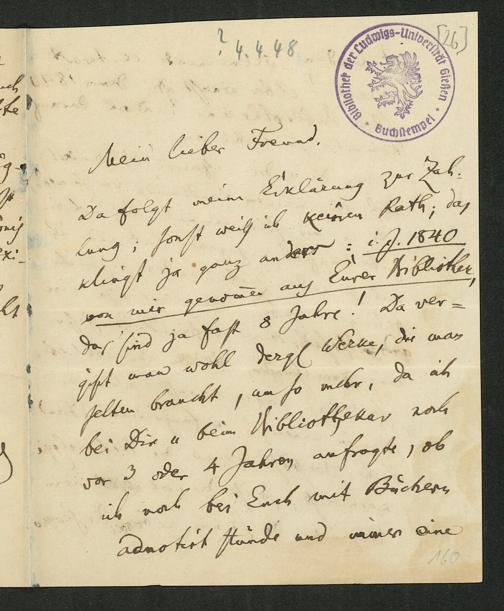 ? 4.4.48
[26]
Bibliothek der Ludwigs-Universität Gießen
Buchstempel
Mein lieber Freund.
Da folgt meine Erklärung zur Zah-
lung; sonst weiß ich keinen Rath; das
klingt ja ganz anders: i. J. 1840
von mir genommen aus Eurer Bibliothek,
das sind ja fast 8 Jahre! Da ver=
gißt man wohl dergl Werke, die man
selten braucht, um so mehr, da ich
bei Dir u beim Bibliothekar noch
vor 3 oder 4 Jahren anfragte, ob
ich noch bei Euch mit Büchern
adnotirt stünde und immer eine
160